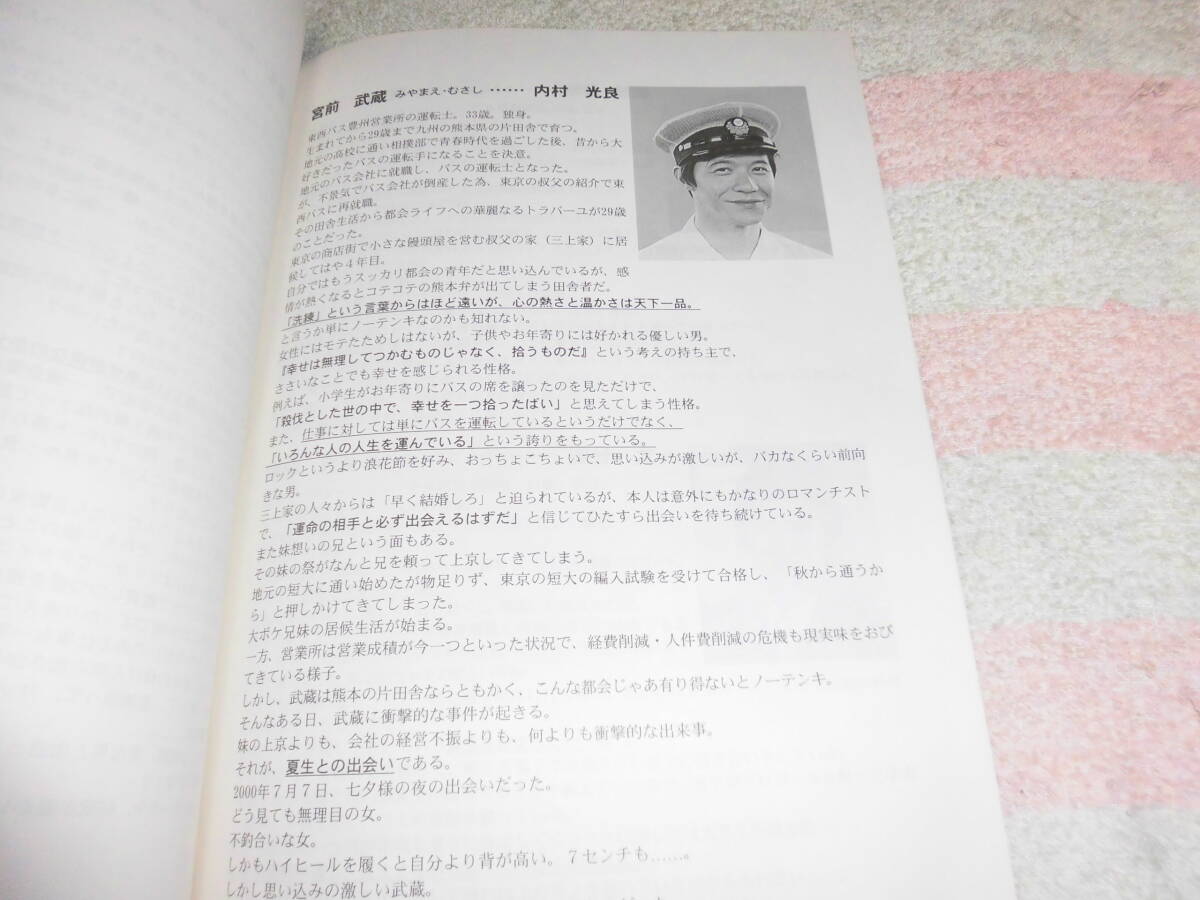 宮前　武蔵　みやまえ・むさし ……　内村　光良
東西バス豊州営業所の運転士。33歳。独身。
生まれてから29歳まで九州の熊本県の片田舎で育つ。
地元の高校に通い相撲部で青春時代を過ごした後、昔から大
好きだったバスの運転手になることを決意。
地元のバス会社に就職し、バスの運転士となった。
が、不景気でバス会社が倒産した為、東京の叔父の紹介で東
西バスに再就職。
その田舎生活から都会ライフへの華麗なるトラバーユが29歳
のことだった。
東京の商店街で小さな饅頭屋を営む叔父の家（三上家）に居
候してはや４年目。
自分ではもうスッカリ都会の青年だと思い込んでいるが、感
情が熱くなるとコテコテの熊本弁が出てしまう田舎者だ。
「洗練」という言葉からはほど遠いが、心の熱さと温かさは天下一品。
と言うか単にノーテンキなのかも知れない。
女性にはモテたためしはないが、子供やお年寄りには好かれる優しい男。
『幸せは無理してつかむものじゃなく、拾うものだ』という考えの持ち主で、
ささいなことでも幸せを感じられる性格。
例えば、小学生がお年寄りにバスの席を譲ったのを見ただけで、
「殺伐とした世の中で、幸せを一つ拾ったばい」と思えてしまう性格。
また、仕事に対しては単にバスを運転しているというだけでなく、
「いろんな人の人生を運んでいる」という誇りをもっている。
ロックというより浪花節を好み、おっちょこちょいで、思い込みが激しいが、バカなくらい前向
きな男。
三上家の人々からは「早く結婚しろ」と迫られているが、本人は意外にもかなりのロマンチスト
で、「運命の相手と必ず出会えるはずだ」と信じてひたすら出会いを待ち続けている。
また妹想いの兄という面もある。
その妹の祭がなんと兄を頼って上京してきてしまう。
地元の短大に通い始めたが物足りず、東京の短大の編入試験を受けて合格し、「秋から通うか
ら」と押しかけてきてしまった。
大ボケ兄妹の居候生活が始まる。
一方、営業所は営業成績が今一つといった状況で、経費削減・人件費削減の危機も現実味をおび
てきている様子。
しかし、武蔵は熊本の片田舎ならともかく、こんな都会じゃあ有り得ないとノーテンキ。
そんなある日、武蔵に衝撃的な事件が起きる。
妹の上京よりも、会社の経営不振よりも、何よりも衝撃的な出来事。
それが、夏生との出会いである。
2000年７月７日、七夕様の夜の出会いだった。
どう見ても無理目の女。
不釣合いな女。
しかもハイヒールを履くと自分より背が高い。７センチも……。
しかし思い込みの激しい武蔵。